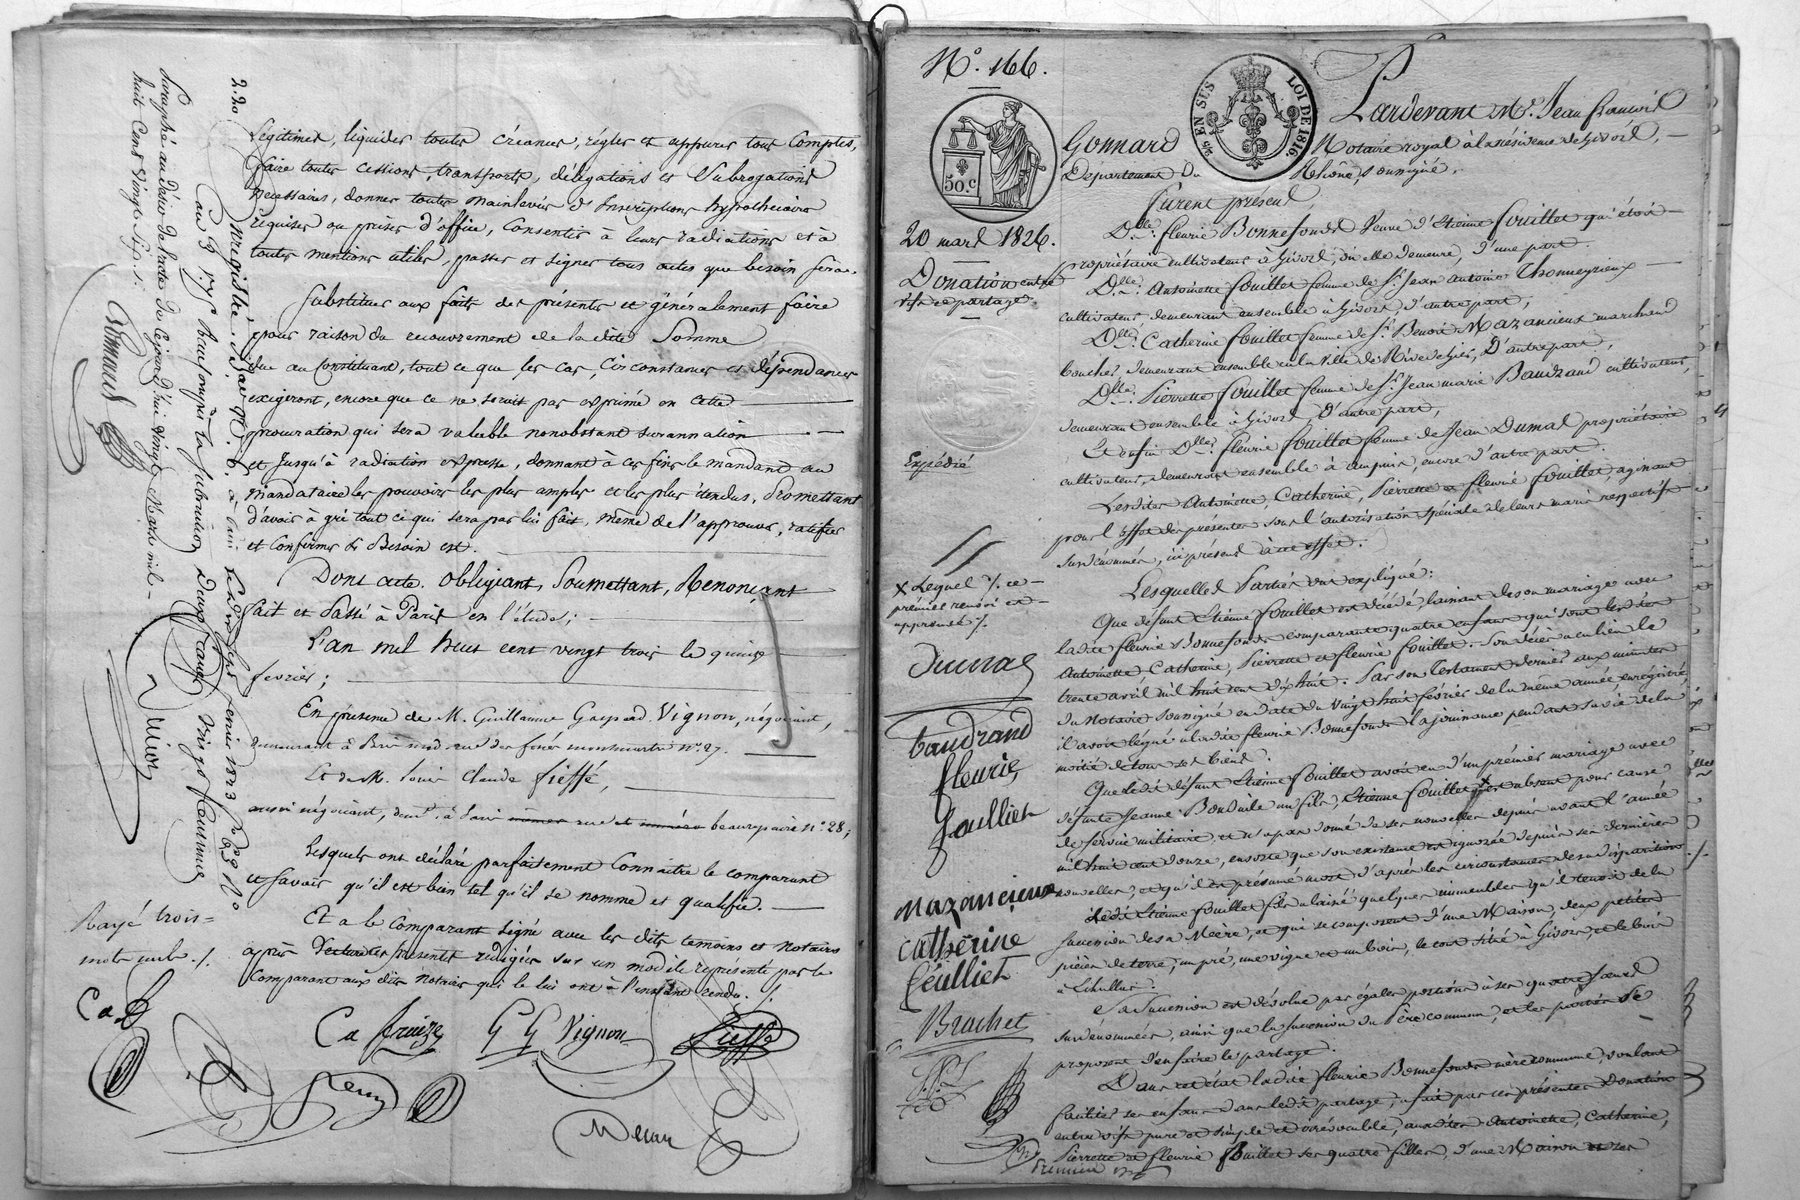 Légitimes, liquider toutes créances, régler et appurer tous Comptes,
faire toutes cessions, transports, délégations et Subrogations
Nécessaires, donner toutes Mainlevées d'Inscriptions hypothécaires
requises ou prises d'office, Consentir à leurs radiations et à
toutes mentions utiles, passer et signer tous actes que besoin sera.
Substituer aux faits des présentes et généralement faire
pour raison du recouvrement de la dite Somme
due au Constituant, tout ce que les cas, Circonstances et dépendances
exigeront, encore que ce ne serait pas exprimé en cette
procuration qui sera valable nonobstant surannation
et jusqu'à radiation expresse, donnant à ces fins le mandant au
Mandataire les pouvoirs les plus amples et les plus étendus, Promettant
d'avoir à gré tout ce qui sera par lui fait, même de l'approuver, ratifier
et Confirmer Si Besoin est.
Dont acte. Obligeant, Soumettant, Renonçant
fait et Passé à Paris en l'étude;
L'an mil huit cent vingt trois le quinze
février;
En présence de M. Guillaume Gaspard Vignon, négociant,
demeurant à Paris rue des fossés montmartre n° 27.
Et de M. Louis Claude Fieffé,
aussi négociant, demt. à Paris rue beaurepaire n° 28;
Lesquels ont déclaré parfaitement Connaître le comparant
et savoir qu'il est bien tel qu'il se nomme et qualifie.
Et a le Comparant Signé avec les dits temoins et Notaires
après lecture des présentes rédigées sur un modèle représenté par le
Comparant aux dits Notaires qui le lui ont à l'instant rendu. /.
Rayé trois
mots nuls ./.
G G Vignon
Fieffé
Paraphé au désir de l'acte de Cejourd'hui vingt Mars mil
huit Cent Vingt Six ./.
Gonnard
N°. 166.
50.C
EN SUS
LOI DE 1816.
20 mars 1826.
Donation entre
vifs et partage.
Expédié
Pardevant Me. Jean François
Gonnard Notaire royal à la résidence de Givors,
Département du Rhône, soussigné,
Furent présens
Dlle. fleurie Bonnefonds Veuve d'Etienne fouillet qui étoit
propriétaire cultivateur à Givors, où elle demeure, d'une part.
Dlle. Antoinette fouillet femme de Sr. Jean Antoine Thomeyrieux
cultivateur, demeurant ensemble à Givors, d'autre part,
Dlle. Catherine fouillet femme de Sr. Benoit Mazancieux marchand
boucher, demeurant ensemble en la ville de Rivedegier, D'autre part,
Dlle. Pierrette fouillet femme de Sr. Jean marie Baudrand cultivateur,
demeurant ensemble à Givors D'autre part,
Et enfin Dlle. fleurie fouillet femme de Jean Dumas propriétaire
cultivateur, demeurant ensemble à ampuis, encore d'autre part.
Lesdites Antoinette, Catherine, Pierrette et fleurie fouillet, agissant
pour l'effet des présentes sous l'autorisation spéciale de leurs maris respectifs
susnommés, ici présens à cet effet.
Lesquelles Parties ont expliqué:
Que défunt Etienne fouillet est décédé, laissant de son mariage avec
ladite fleurie Bonnefonds comparante quatre enfans qui sont lesdites
Antoinette, Catherine, Pierrette et fleurie fouillet. Son décès a eu lieu le
trente avril mil huit cent dix huit. Par son Testament dernier aux minutes
du Notaire soussigné en date du vingt huit février de la même année enregistré,
il avoit légué à ladite fleurie Bonnefonds la jouissance pendant sa vie de la
moitié de tous ses biens.
Que ledit défunt Etienne fouillet avoit eu d'un premier mariage avec
défunte Jeanne un fils, Etienne fouillet x est absent pour cause
de service militaire et n'a pas donné de ses nouvelles depuis avant l'année
mil huit cent douze, ensorte que son existence est ignorée depuis ses dernières
nouvelles, et qu'il est présumé mort d'après les circonstances de sa disparition
Ledit Etienne fouillet fils a laissé quelques immeubles qu'il tenoit de la
succession de sa Mère, et qui se composent d'une Maison, deux petites
pièces de terre, un pré, une vigne et un bois, le tout situé à Givors, et le bois
à Echallas.
Sa succession est dévolue par égales portions à ses quatre sœurs
susnommées, ainsi que la succession du Père commun, et les parties se
proposent d'en faire le partage.
Dans cet état ladite fleurie Bonnefonds mère commune, voulant
faciliter ses enfans dans ledit partage, a fait par ces présentes Donation
entre vifs pure et simple et irrévocable, auxdites Antoinette, Catherine,
Pierrette et fleurie fouillet ses quatre filles, d'une Maison et ses
x Lequel /. ce
premier renvoi est
approuvé /.
Dumas
baudrand
fleurie
foulliet
mazancieux
catherine
feulliet
Brachet